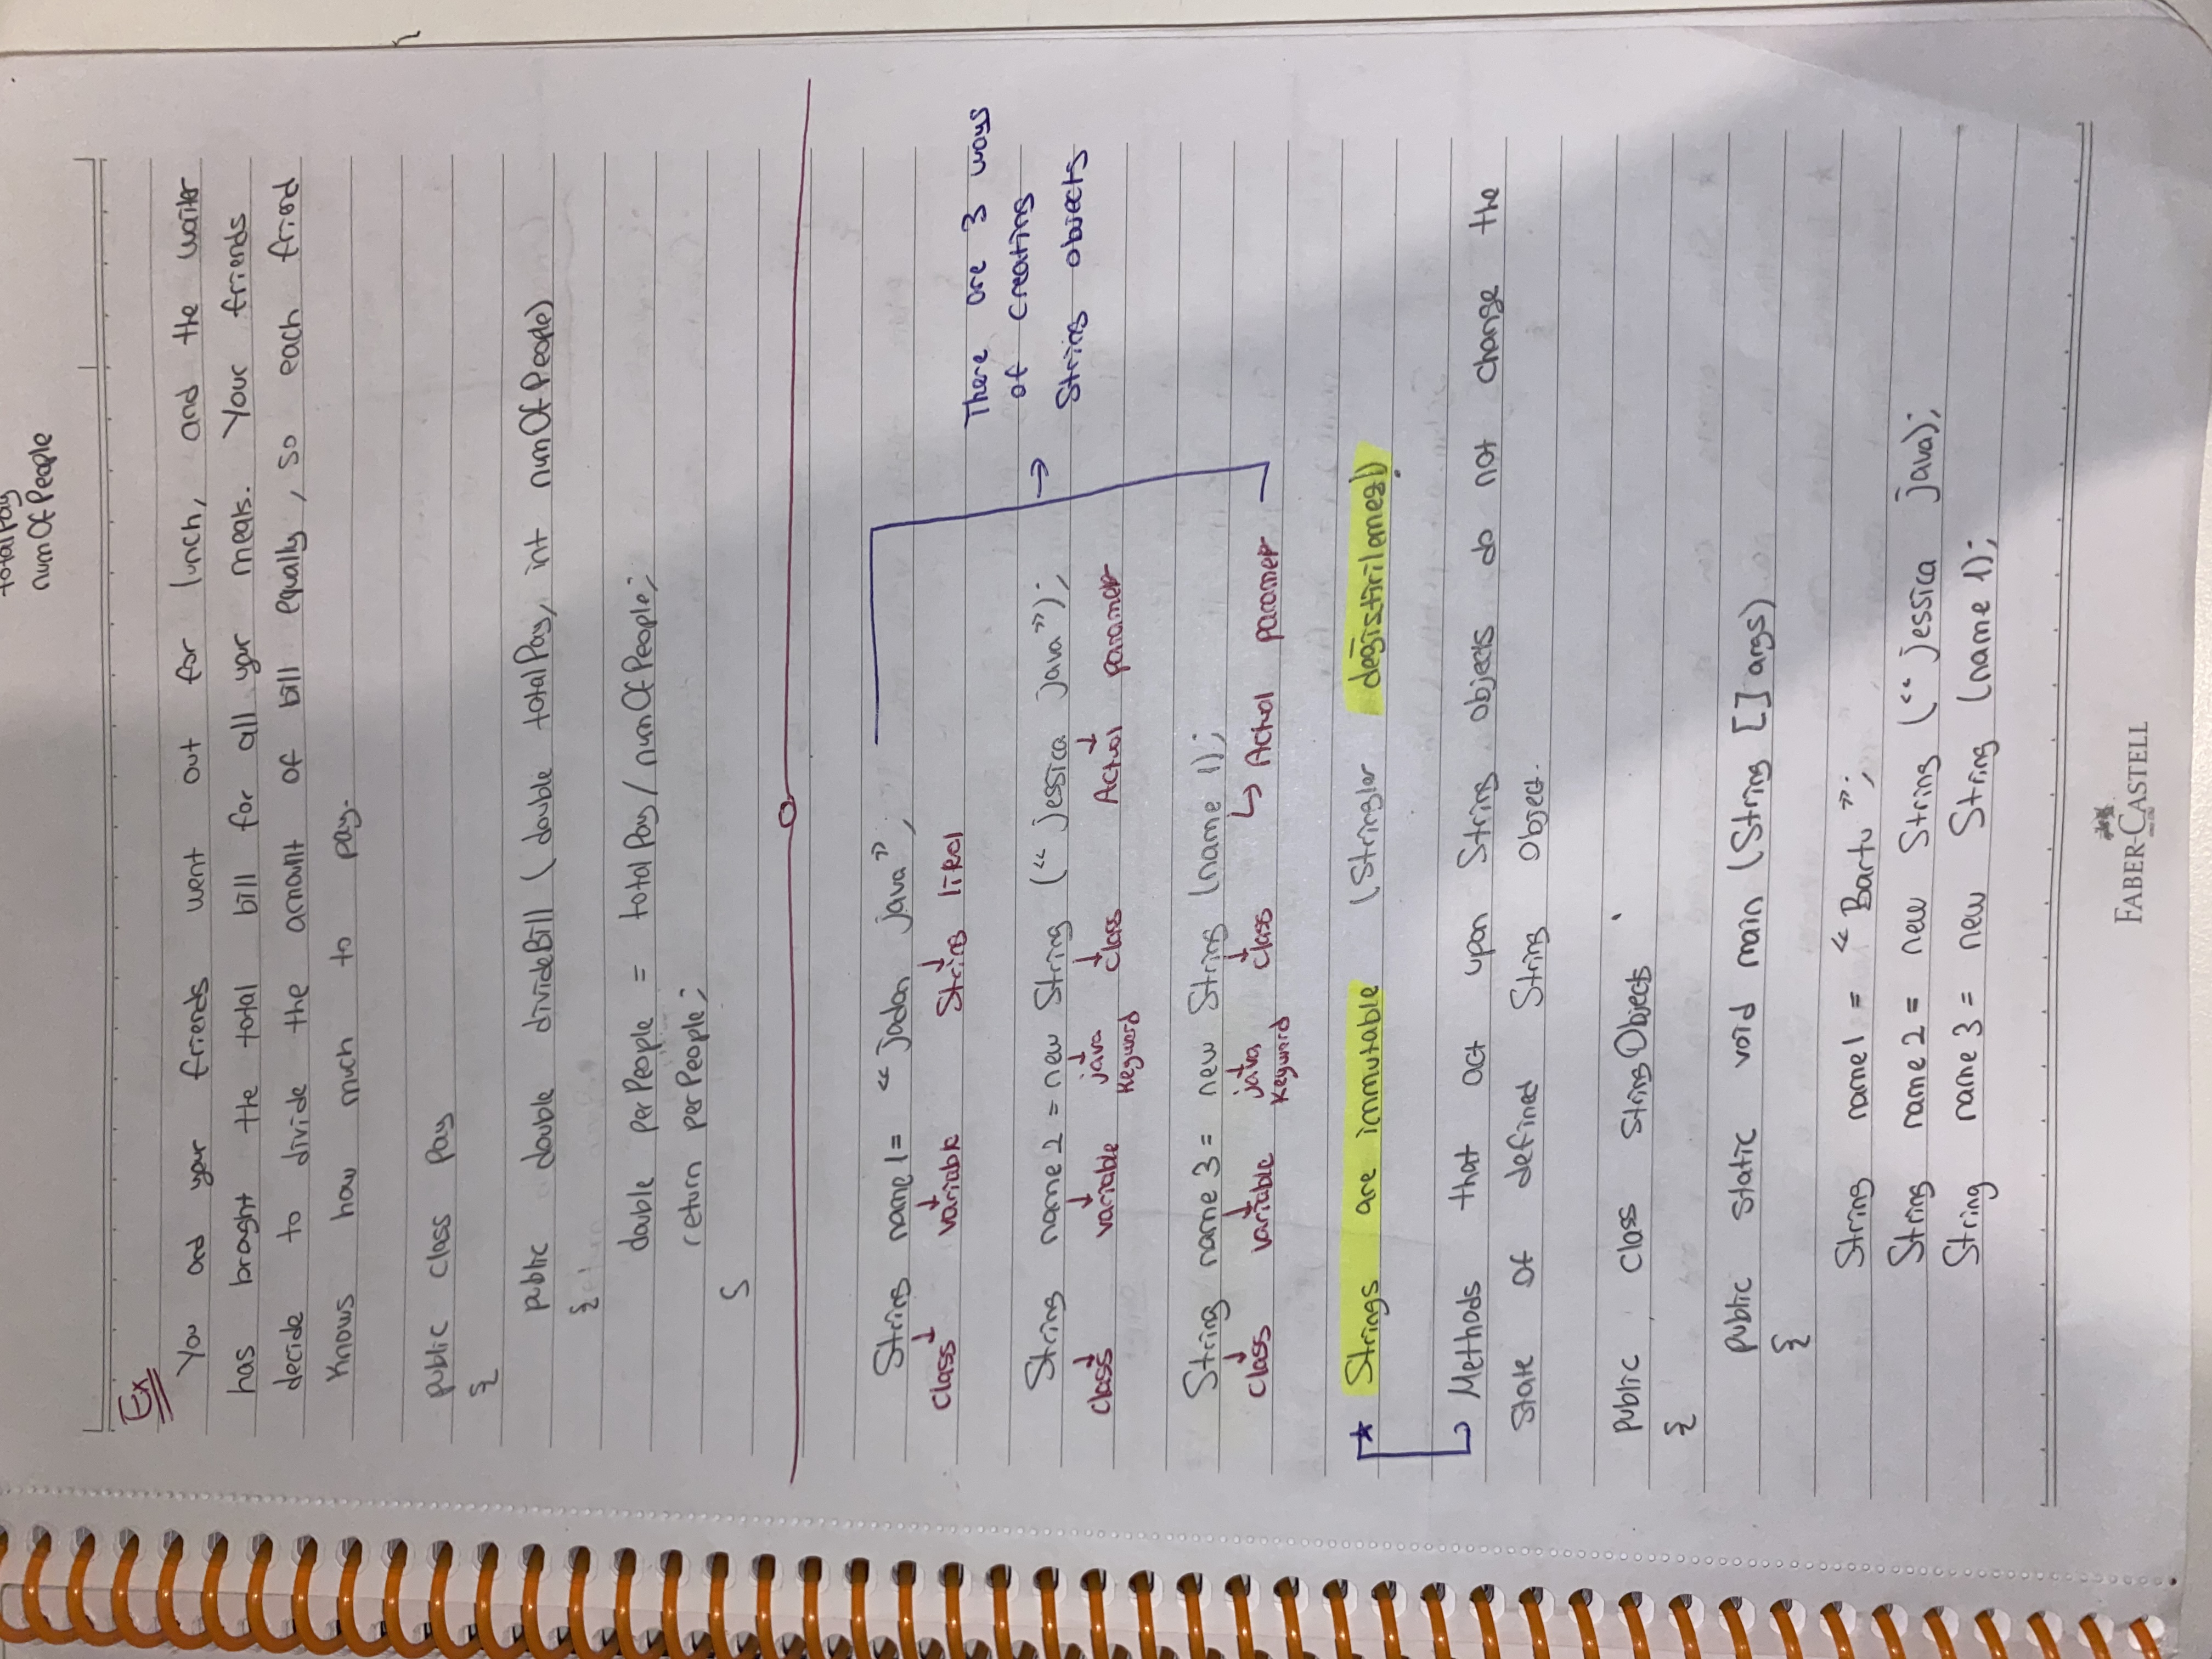 totalPay
numOfPeople
Ex
You and your friends went out for lunch, and the waiter
has brought the total bill for all your meals. Your friends
decide to divide the amount of bill equally, so each friend
knows how much to pay.
public class Pay
{
public double divideBill (double totalPay, int numOfPeople)
{
double perPeople = totalPay / numOfPeople;
return perPeople;
}
String name1 = "jadan java";
class variable String litrel
String name2 = new String ("jessica java");
class variable java class Actual parameter
Keyword
String name3 = new String (name 1);
class variable java class Actual parameter
Keyword
There are 3 ways
of creating
String objects
★ Strings are immutable (Stringler değiştirilemez!)
Methods that act upon String objects do not change the
state of defined String Object.
public class StringObjects
{
public static void main (String [] args)
{
String name1 = "Bartu";
String name2 = new String ("jessica java);
String name3 = new String (name 1);
FABER-CASTELL
since 1761